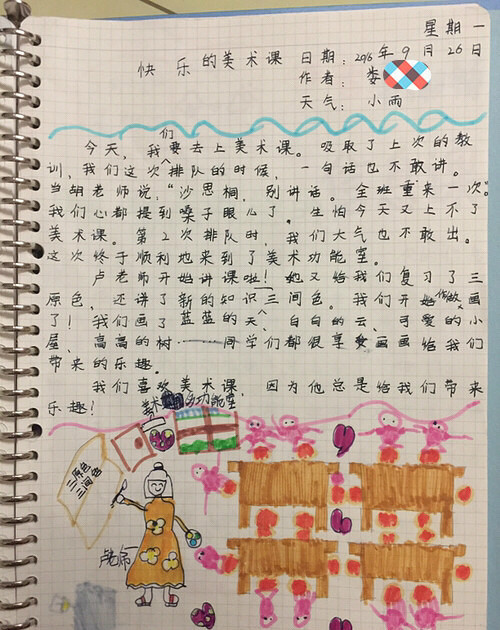 星期一
快乐的美术课 日期：2016年9月26日
作者：娄
天气：小雨
今天，我们要去上美术课。吸取了上次的教
训，我们这次排队的时候，一句话也不敢讲。
当胡老师说，“沙思桐，别讲话。全班重来一次。”
我们心都提到嗓子眼儿了。生怕今天又上不了
美术课。第2次排队时，我们大气也不敢出。
这次终于顺利地来到了美术功能室。
卢老师开始讲课啦！她又给我们复习了三
原色，还讲了新的知识三间色。我们开始做画
了！我们画了蓝蓝的天、白白的云、可爱的小
屋、高高的树……同学们都很享受画画给我们
带来的乐趣。
我们喜欢美术课，因为他总是给我们带来
乐趣！
美术功能室
三原色
三间色
卢老师